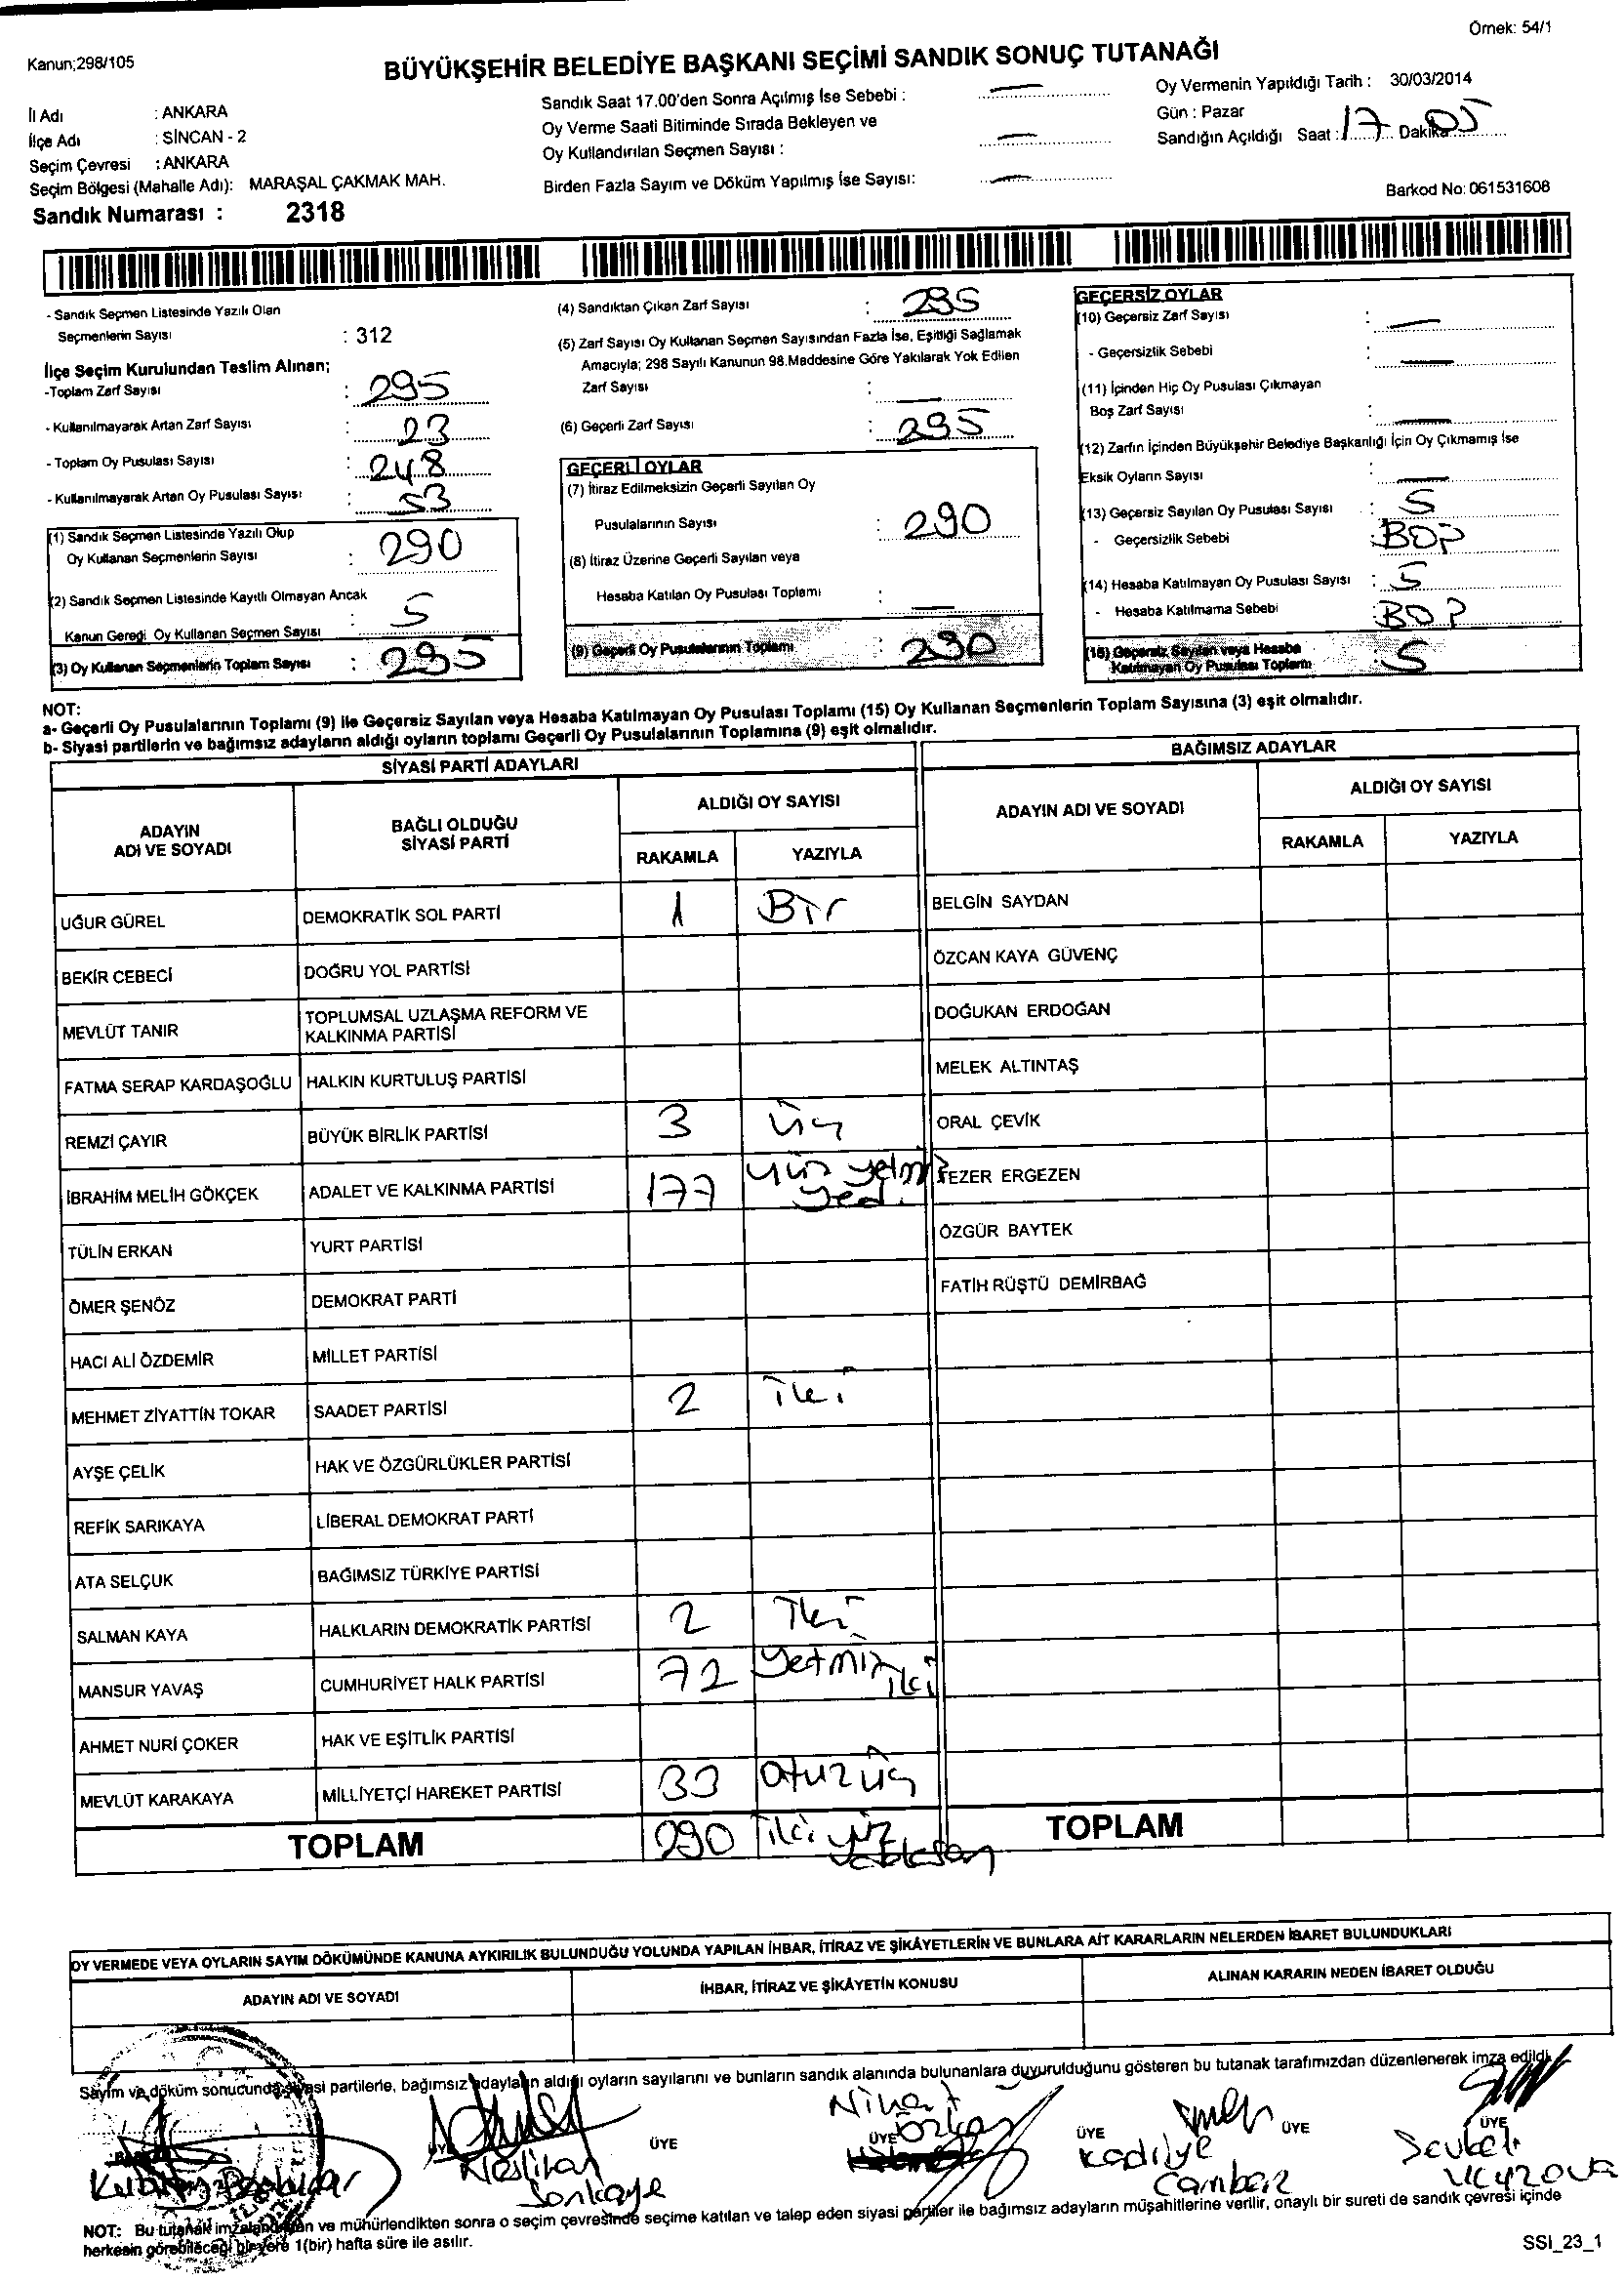 Örnek: 54/1
Kanun;298/105
BÜYÜKŞEHİR BELEDİYE BAŞKANI SEÇİMİ SANDIK SONUÇ TUTANAĞI
İl Adı : ANKARA
İlçe Adı : SİNCAN - 2
Seçim Çevresi : ANKARA
Seçim Bölgesi (Mahalle Adı): MARAŞAL ÇAKMAK MAH.
Sandık Numarası : 2318
Sandık Saat 17.00'den Sonra Açılmış İse Sebebi : —
Oy Verme Saati Bitiminde Sırada Bekleyen ve
Oy Kullandırılan Seçmen Sayısı : —
Birden Fazla Sayım ve Döküm Yapılmış İse Sayısı: —
Oy Vermenin Yapıldığı Tarih : 30/03/2014
Gün : Pazar
Sandığın Açıldığı Saat : 17 Dakika 05
Barkod No: 061531608
- Sandık Seçmen Listesinde Yazılı Olan
Seçmenlerin Sayısı : 312
İlçe Seçim Kurulundan Teslim Alınan;
-Toplam Zarf Sayısı : 295
- Kullanılmayarak Artan Zarf Sayısı : 23
- Toplam Oy Pusulası Sayısı : 248
- Kullanılmayarak Artan Oy Pusulası Sayısı : 53
(1) Sandık Seçmen Listesinde Yazılı Olup
Oy Kullanan Seçmenlerin Sayısı : 290
(2) Sandık Seçmen Listesinde Kayıtlı Olmayan Ancak
Kanun Gereği Oy Kullanan Seçmen Sayısı : 5
(3) Oy Kullanan Seçmenlerin Toplam Sayısı : 295
(4) Sandıktan Çıkan Zarf Sayısı : 295
(5) Zarf Sayısı Oy Kullanan Seçmen Sayısından Fazla İse, Eşitliği Sağlamak
Amacıyla; 298 Sayılı Kanunun 98.Maddesine Göre Yakılarak Yok Edilen
Zarf Sayısı : —
(6) Geçerli Zarf Sayısı : 295
GEÇERLİ OYLAR
(7) İtiraz Edilmeksizin Geçerli Sayılan Oy
Pusulalarının Sayısı : 290
(8) İtiraz Üzerine Geçerli Sayılan veya
Hesaba Katılan Oy Pusulası Toplamı : —
(9) Geçerli Oy Pusulalarının Toplamı : 290
GEÇERSİZ OYLAR
(10) Geçersiz Zarf Sayısı : —
- Geçersizlik Sebebi : —
(11) İçinden Hiç Oy Pusulası Çıkmayan
Boş Zarf Sayısı : —
(12) Zarfın İçinden Büyükşehir Belediye Başkanlığı İçin Oy Çıkmamış İse
Eksik Oyların Sayısı : —
(13) Geçersiz Sayılan Oy Pusulası Sayısı : 5
- Geçersizlik Sebebi : BOP
(14) Hesaba Katılmayan Oy Pusulası Sayısı : 5
- Hesaba Katılmama Sebebi : BOP
(15) Geçersiz Sayılan veya Hesaba
Katılmayan Oy Pusulası Toplamı : 5
NOT:
a- Geçerli Oy Pusulalarının Toplamı (9) ile Geçersiz Sayılan veya Hesaba Katılmayan Oy Pusulası Toplamı (15) Oy Kullanan Seçmenlerin Toplam Sayısına (3) eşit olmalıdır.
b- Siyasi partilerin ve bağımsız adayların aldığı oyların toplamı Geçerli Oy Pusulalarının Toplamına (9) eşit olmalıdır.
SİYASİ PARTİ ADAYLARI
ADAYIN ADI VE SOYADI
BAĞLI OLDUĞU SİYASİ PARTİ
ALDIĞI OY SAYISI
RAKAMLA YAZIYLA
UĞUR GÜREL DEMOKRATİK SOL PARTİ 1 Bir
BEKİR CEBECİ DOĞRU YOL PARTİSİ
MEVLÜT TANIR TOPLUMSAL UZLAŞMA REFORM VE
KALKINMA PARTİSİ
FATMA SERAP KARDAŞOĞLU HALKIN KURTULUŞ PARTİSİ
REMZİ ÇAYIR BÜYÜK BİRLİK PARTİSİ 3 üç
İBRAHİM MELİH GÖKÇEK ADALET VE KALKINMA PARTİSİ 177 yüz yetmiş
yedi
TÜLİN ERKAN YURT PARTİSİ
ÖMER ŞENÖZ DEMOKRAT PARTİ
HACI ALİ ÖZDEMİR MİLLET PARTİSİ
MEHMET ZİYATTİN TOKAR SAADET PARTİSİ 2 iki
AYŞE ÇELİK HAK VE ÖZGÜRLÜKLER PARTİSİ
REFİK SARIKAYA LİBERAL DEMOKRAT PARTİ
ATA SELÇUK BAĞIMSIZ TÜRKİYE PARTİSİ
SALMAN KAYA HALKLARIN DEMOKRATİK PARTİSİ 2 iki
MANSUR YAVAŞ CUMHURİYET HALK PARTİSİ 72 yetmiş
iki
AHMET NURİ ÇOKER HAK VE EŞİTLİK PARTİSİ
MEVLÜT KARAKAYA MİLLİYETÇİ HAREKET PARTİSİ 33 otuz üç
TOPLAM 290 iki yüz
BAĞIMSIZ ADAYLAR
ADAYIN ADI VE SOYADI
ALDIĞI OY SAYISI
RAKAMLA YAZIYLA
BELGİN SAYDAN
ÖZCAN KAYA GÜVENÇ
DOĞUKAN ERDOĞAN
MELEK ALTINTAŞ
ORAL ÇEVİK
EZER ERGEZEN
ÖZGÜR BAYTEK
FATİH RÜŞTÜ DEMİRBAĞ
TOPLAM
OY VERMEDE VEYA OYLARIN SAYIM DÖKÜMÜNDE KANUNA AYKIRILIK BULUNDUĞU YOLUNDA YAPILAN İHBAR, İTİRAZ VE ŞİKÂYETLERİN VE BUNLARA AİT KARARLARIN NELERDEN İBARET BULUNDUKLARI
ADAYIN ADI VE SOYADI
İHBAR, İTİRAZ VE ŞİKÂYETİN KONUSU
ALINAN KARARIN NEDEN İBARET OLDUĞU
Sayım ve döküm sonucunda siyasi partilerle, bağımsız adayların aldığı oyların sayılarını ve bunların sandık alanında bulunanlara duyurulduğunu gösteren bu tutanak tarafımızdan düzenlenerek imza edildi.
ÜYE ÜYE ÜYE ÜYE ÜYE ÜYE
Neslihan
Sarıkaya
Nihat
Özkan
Kadriye
Cambaz
Şevket
NOT: Bu tutanak imzalandıktan ve mühürlendikten sonra o seçim çevresinde seçime katılan ve talep eden siyasi partiler ile bağımsız adayların müşahitlerine verilir, onaylı bir sureti de sandık çevresi içinde
herkesin görebileceği bir yere 1(bir) hafta süre ile asılır.
SSI_23_1